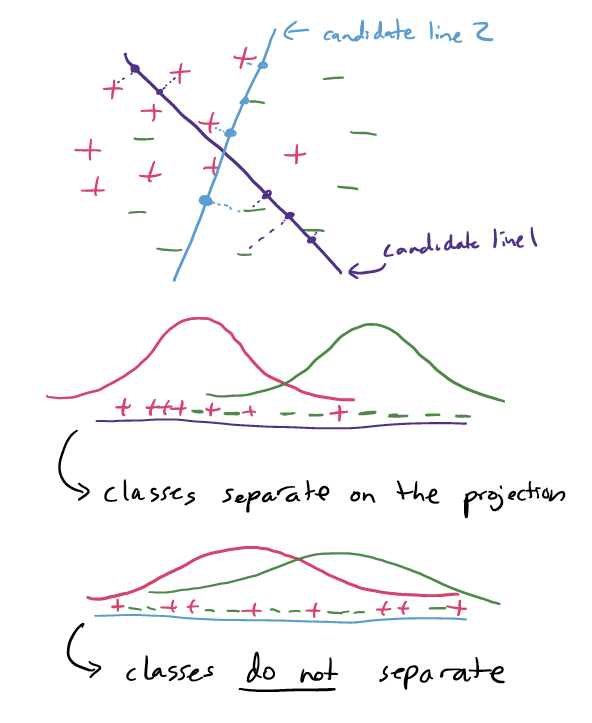 candidate line 2
candidate line 1
classes separate on the projection
classes do not separate